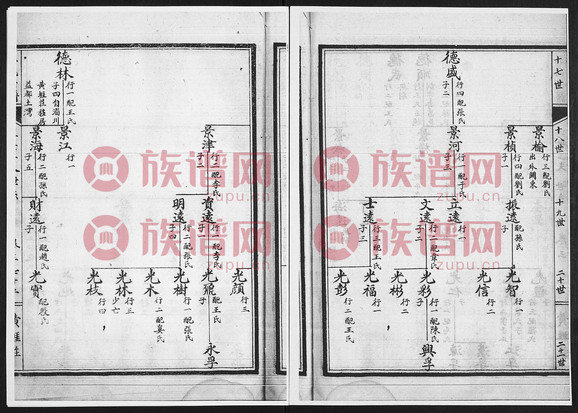 十七世
十八世
十九世
二十世
二十一世
德盛
行四配張氏
子二
景榆
行三配劉氏
出外關東
景楨
行四配劉氏
子一
振遠
行一配孫氏
子二
光智
行一
光信
行二
景河
行一配于氏
子三
立遠
行一
文遠
子二
光彩
行一配陳氏
子一
興孚
光彬
行二
士遠
行三配王氏
子二
光福
行一
光彭
行二配王氏
德林
行一配王氏
子四自淄川
黃桂莊居
益都土灣
景津
行二配李氏
子二
資遠
行一配李氏
光顏
行三
永孚
明遠
行二配張氏
子四
光樹
行一配張氏
光木
行二配姜氏
光林
行三
少亡
光枝
行四
景江
行一
景海
行二配孫氏
子五
財遠
行一配趙氏
子
光寶
族谱网
zupu.cn
族谱网
zupu.cn
族谱网
zupu.cn
族谱网
zupu.cn